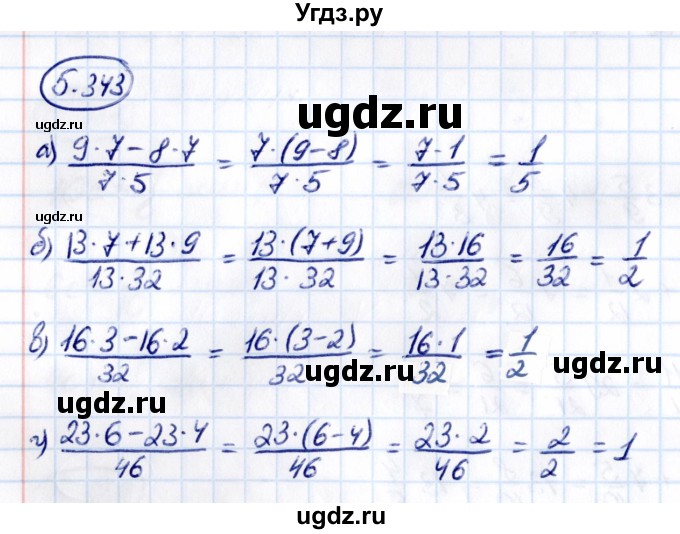 Угдз.ру
5.343
ugdz.ru ugdz.ru
а) (9·7−8·7)/(7·5) = (7·(9−8))/(7·5) = (7·1)/(7·5) = 1/5
ugdz.ru
ugdz.ru ugdz.ru
б) (13·7+13·9)/(13·32) = (13·(7+9))/(13·32) = (13·16)/(13·32) = 16/32 = 1/2
ugdz.ru
в) (16·3−16·2)/32 = (16·(3−2))/32 = (16·1)/32 = 1/2
ugdz.ru ugdz.ru
ugdz.ru
г) (23·6−23·4)/46 = (23·(6−4))/46 = (23·2)/46 = 2/2 = 1
ugdz.ru
ugdz.ru